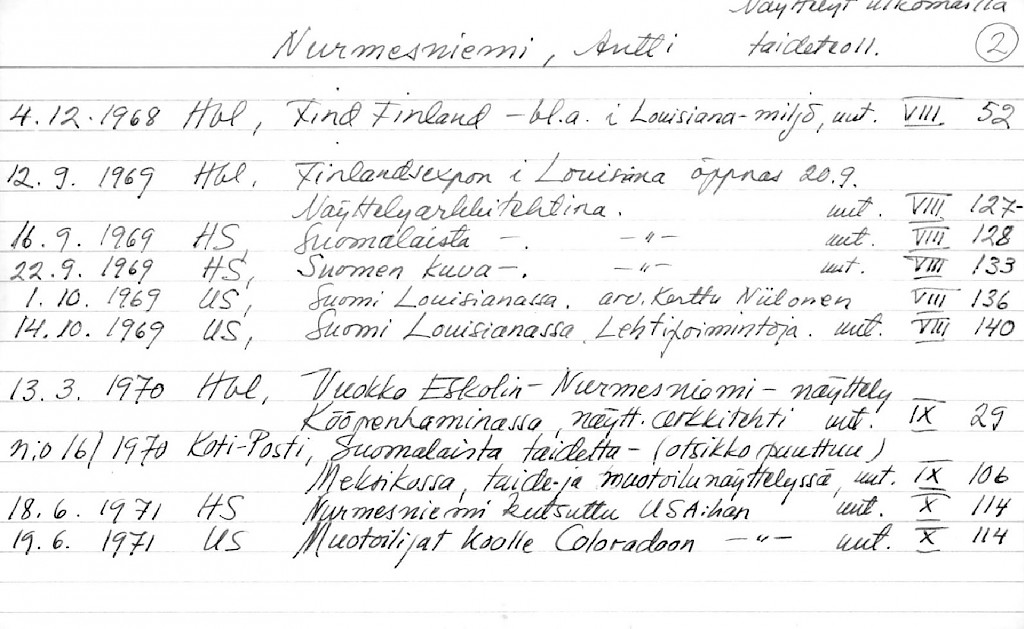 Näyttelyt ulkomailla
Nurmesniemi, Antti taideteoll. 2
4.12.1968 Hbl, Find Finland - bl.a. i Louisiana-miljö, uut. VIII 52
12.9. 1969 Hbl. Finlandsexpon i Louisiana öppnas 20.9.
Näyttelyarkkitehtina. uut. VIII 127-
16.9. 1969 HS, Suomalaista -. -"- uut. VIII 128
22.9. 1969 HS, Suomen kuva -. -"- uut. VIII 133
1.10. 1969 US, Suomi Louisianassa. arv. Kerttu Niilonen VIII 136
14.10. 1969 US, Suomi Louisianassa. Lehtipoimintoja. uut. VIII 140
13.3. 1970 Hbl, Vuokko Eskolin-Nurmesniemi - näyttely
Kööpenhaminassa, näytt. arkkitehti uut. IX 29
n:o 16/1970 Koti-Posti, Suomalaista taidetta - (otsikko puuttuu)
Meksikossa, taide- ja muotoilunäyttelyssä, uut. IX 106
18.6. 1971 HS Nurmesniemi kutsuttu USA:han uut. X 114
19.6. 1971 US Muotoilijat koolle Coloradoon -"- uut. X 114